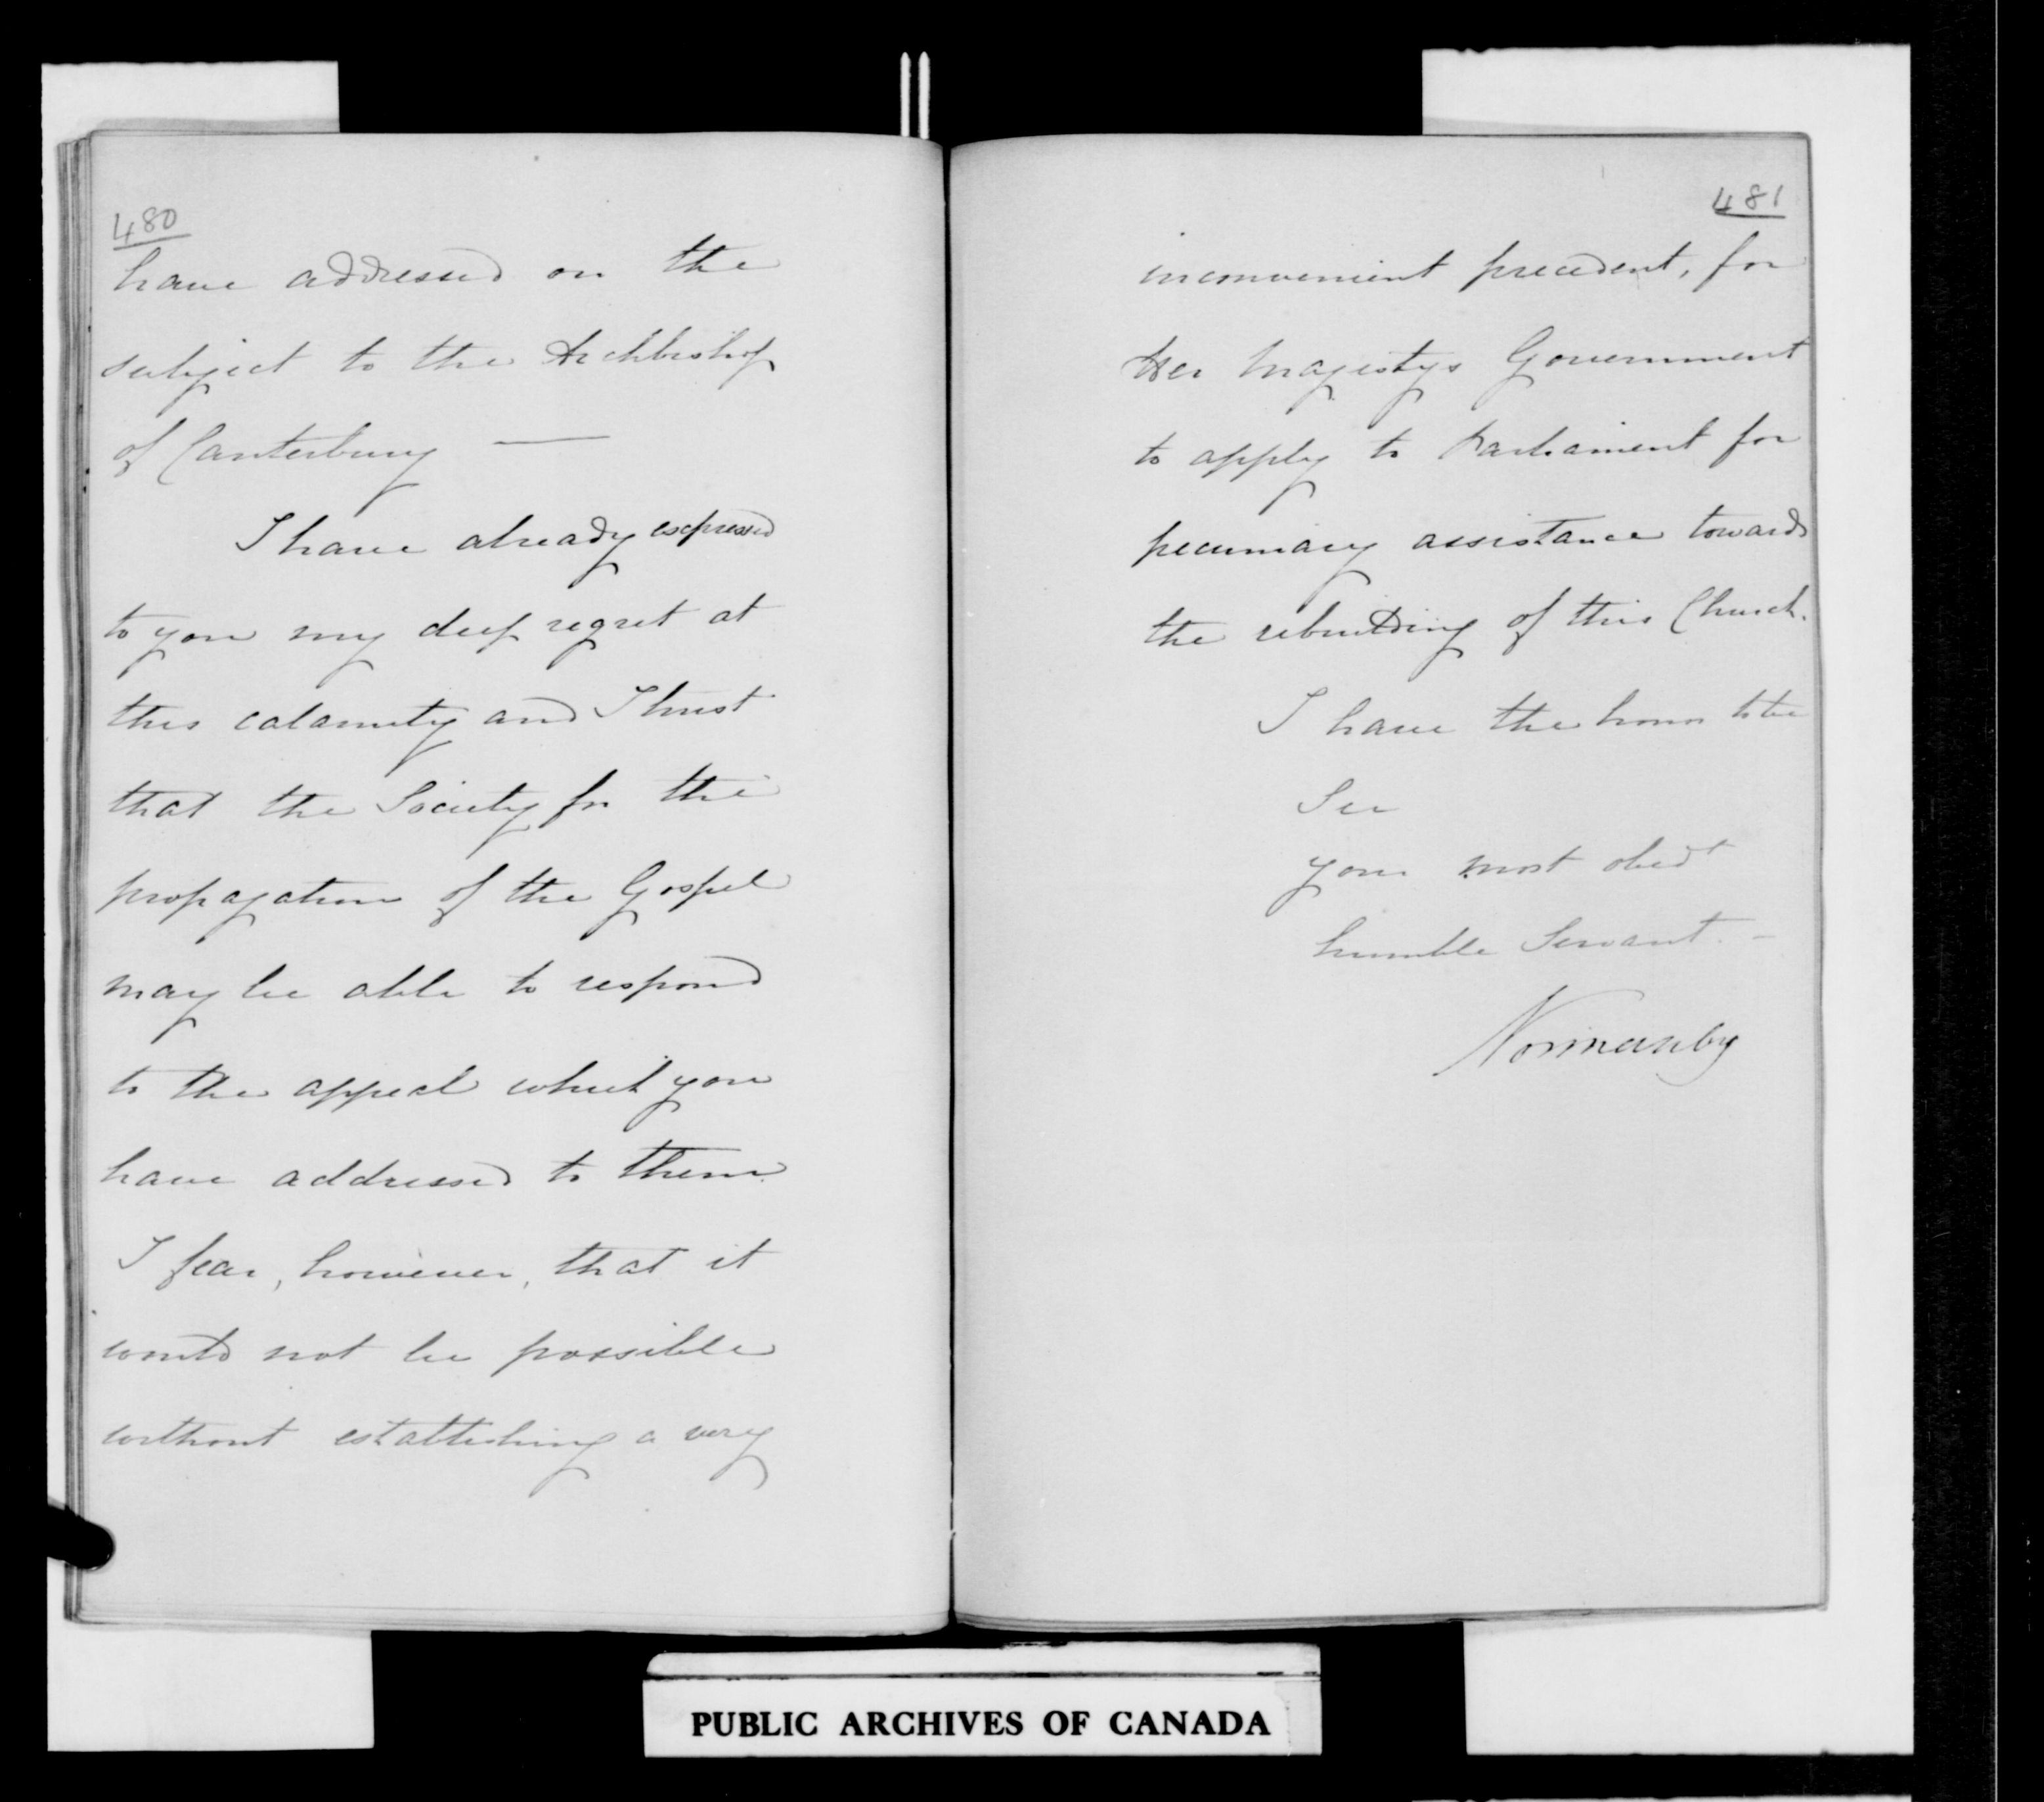 480
have addressed on the
subject to the Archbishop
of Canterbury —
I have already expressed
to you my deep regret at
this calamity and I trust
that the Society for the
propagation of the Gospel
may be able to respond
to the appeal which you
have addressed to them.
I fear, however, that it
would not be possible
without establishing a very
481
inconvenient precedent, for
Her Majestys Government
to apply to Parliament for
pecuniary assistance towards
the rebuilding of this Church.
I have the honor to be
Sir
your most obedt
humble Servant. -
Normanby
PUBLIC ARCHIVES OF CANADA